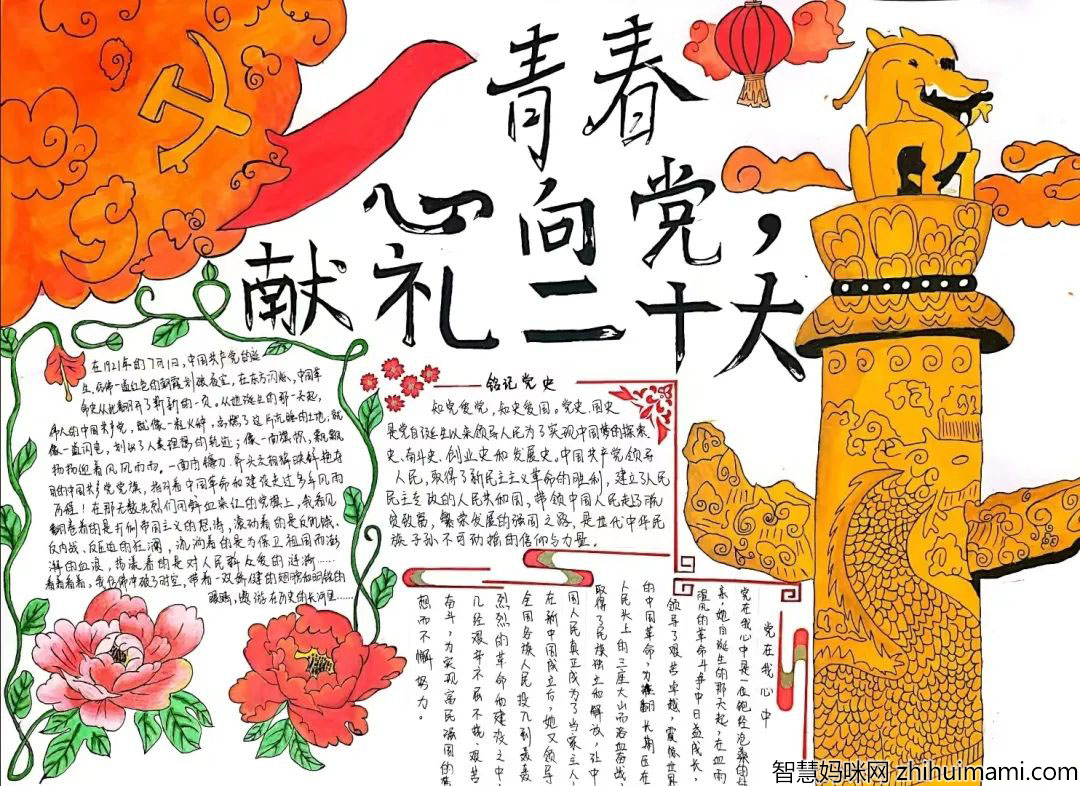 青春
心向党，
献礼二十大
在1921年的7月1日，中国共产党的诞
生，仿佛一道红色的新霞划破夜空，在东方闪耀，中国革
命史从此翻开了新新的一页。从他诞生的那一天起，
伟人的中国共产党，就像一粒火种，点燃了这片沉睡的土地；就
像一道闪电，划出了人类理想的轨迹；像一面旗帜，飘飘
扬扬迎着风风雨雨。一面由镰刀、斧头交相辉映鲜艳夺
目的中国共产党党旗，指引着中国革命和建设走过多少风雨
历程！在那无数先烈们用鲜血染红的党旗上，我看见
翻卷着的是打倒帝国主义的怒涛，滚动着的是反饥饿、
反内战、反压迫的狂澜，流淌着的是为保卫祖国而澎
湃的血浪，荡漾着的是对人民群众爱的涟漪……
看着看着，我仿佛中破了时空，带着一双矫健的翅膀和明敏的
眼睛，遨游在历史的长河里……
铭记党史
知党爱党，知史爱国。党史、国史
是党自诞生以来领导人民为了实现中国梦的探索
史、奋斗史、创业史和发展史。中国共产党领导
人民，取得了新民主主义革命的胜利，建立了人民
民主专政的人民共和国，带领中国人民走了
繁荣发展的强国之路，是世代中华民
族子孙不可动摇的信仰与力量。
党在我心中
党在我心中是一座饱经沧桑的
她自诞生的那天起，在血雨
腥风的革命斗争中日益成长，
领导了艰苦卓越，震惊世界
的中国革命，为推翻长期压在
人民头上的三座大山而浴血奋战，
取得了民族独立和解放，让中
国人民真正成为了当家主人，
在新中国成立后，她又领导
全国各族人民投入到轰轰
烈烈的革命和建设之中，
几经艰辛不屈不挠、艰苦
奋斗，为实现富民强国的
想而不懈努力。
智慧妈咪网 zhihuimami.com